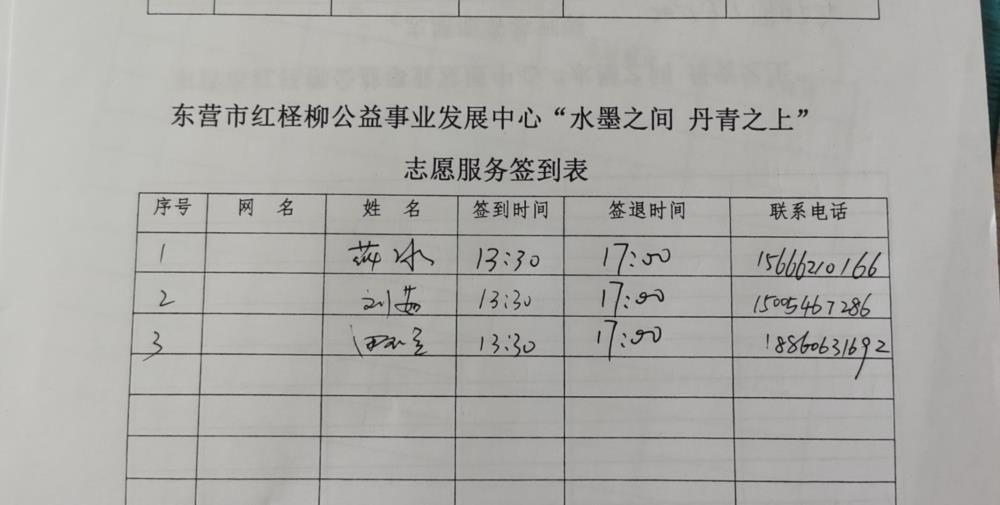 东营市红柽柳公益事业发展中心“水墨之间 丹青之上”
志愿服务签到表
序号 网 名 姓 名 签到时间 签退时间 联系电话
1 冰 13:30 17:00 15666210166
2 刘茹 13:30 17:00 15095467286
3 13:30 17:00 18860631692